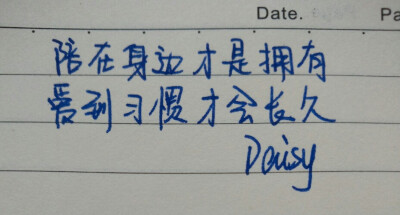 Date. Pa
陪在身边才是拥有
爱到习惯才会长久
Daisy